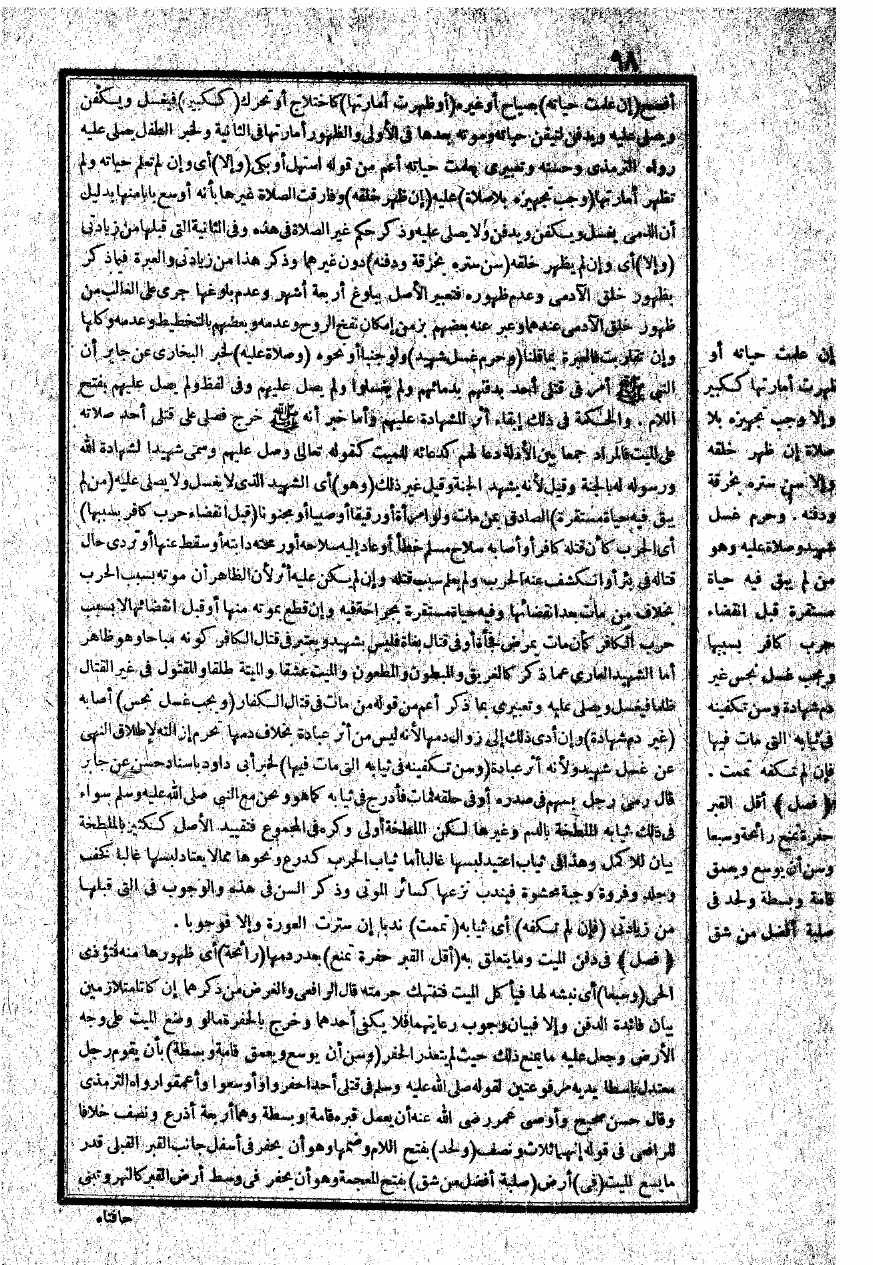 ٩٨
أفصح (إن علمت حياته) بصياح أو غيره (أو ظهرت أمارتها) كاختلاج أو تحرك (ككبير) فيغسل ويكفن
ويصلى عليه ويدفن لتيقن حياته وموته بعدها فى الأولى ولظهور أمارتها فى الثانية ولخبر الطفل يصلى عليه
رواه الترمذى وحسنه وتعبيرى بعلمت حياته أعم من قوله استهل أو بكى (وإلا) أى وإن لم تعلم حياته ولم
تظهر أمارتها (وجب تجهيزه بلا صلاة) عليه (إن ظهر خلقه) وفارقت الصلاة غيرها بأنه أوسع بابا منها بدليل
أن الذمى يغسل ويكفن ويدفن ولا يصلى عليه وذكر حكم غير الصلاة فى هذه وفى الثانية التى قبلها من زيادتى
(وإلا) أى وإن لم يظهر خلقه (سن ستره بخرقة ودفنه) دون غيرهما وذكر هذا من زيادتى والعبرة فيما ذكر
بظهور خلق الآدمى وعدم ظهوره فتعبير الأصل ببلوغ أربعة أشهر وعدم بلوغها جرى على الغالب من
ظهور خلق الآدمى عندها وعبر عنه بعضهم بزمن إمكان نفخ الروح وعدمه وبعضهم بالتخطيط وعدمه وكلها
وإن تقاربت فالعبرة بما قلنا (وحرم غسل شهيد) ولو جنبا أو نحوه (وصلاة عليه) لخبر البخارى عن جابر أن
النبى ﷺ أمر فى قتلى أحد بدفنهم بدمائهم ولم يغسلوا ولم يصل عليهم وفى لفظ ولم يصل عليهم بفتح
اللام . والحكمة فى ذلك إبقاء أثر الشهادة عليهم وأما خبر أنه ﷺ خرج فصلى على قتلى أحد صلاته
على الميت فالمراد جمعا بين الأدلة دعا لهم كدعائه للميت كقوله تعالى وصل عليهم وسمى شهيدا لشهادة الله
ورسوله له بالجنة وقيل لأنه يشهد الجنة وقيل غير ذلك (وهو) أى الشهيد الذى لا يغسل ولا يصلى عليه (من لم
يبق فيه حياة مستقرة) الصادق بمن مات ولو امرأة أو رقيقا أو صبيا أو مجنونا (قبل انقضاء حرب كافر بسببها)
أى الحرب كأن قتله كافر أو أصابه سلاح مسلم خطأ أو عاد إليه سلاحه أو رمحته دابته أو سقط عنها أو تردى حال
قتاله فى بئر أو انكشف عنه الحرب ولم يعلم سبب قتله وإن لم يكن عليه أثر لأن الظاهر أن موته بسبب الحرب
بخلاف من مات بعد انقضائها وفيه حياة مستقرة بجراحة فيه وإن قطع بموته منها أو قبل انقضائها لا بسبب
حرب الكافر كأن مات بمرض فجأة أو فى قتال بغاة فليس بشهيد ويعتبر فى قتال الكافر كونه مباحا وهو ظاهر
أما الشهيد العارى عما ذكر كالغريق والمبطون والمطعون والميت عشقا والميتة طلقا والمقتول فى غير القتال
ظلما فيغسل ويصلى عليه وتعبيرى بما ذكر أعم من قوله من مات فى قتال الكفار (ويجب غسل نجس) أصابه
(غير دم شهادة) وإن أدى ذلك إلى زوال دمها لأنه ليس من أثر عبادة بخلاف دمها تحرم إزالته لإطلاق النهى
عن غسل شهيد ولأنه أثر عبادة (وسن تكفينه فى ثيابه التى مات فيها) لخبر أبى داود بإسناد حسن عن جابر
قال رمى رجل بسهم فى صدره أو فى حلقه فمات فأدرج فى ثيابه كما هو ونحن مع النبى صلى الله عليه وسلم سواء
فى ذلك ثيابه الملطخة بالدم وغيرها لكن الملطخة أولى وكره فى المجموع فتقييد الأصل ككثير بالملطخة
بيان للأكمل وهذا فى ثياب اعتيد لبسها غالبا أما ثياب الحرب كدرع ونحوها مما لا يعتاد لبسها غالبا كخف
وجلد وفروة وجبة محشوة فيندب نزعها كسائر الموتى وذكر السن فى هذه والوجوب فى التى قبلها
من زيادتى (فإن لم تكفه) أى ثيابه (تممت) ندبا إن سترت العورة وإلا فوجوبا .
﴿ فصل ﴾ فى دفن الميت وما يتعلق به (أقل القبر حفرة تمنع) بعد ردمها (رائحة) أى ظهورها منه فتؤذى
الحى (وسبعا) أى نبشه لها فيأكل الميت فتنتهك حرمته قال الرافعى والغرض من ذكرهما إن كانا متلازمين
بيان فائدة الدفن وإلا فبيان وجوب رعايتهما فلا يكفى أحدهما وخرج بالحفرة ما لو وضع الميت على وجه
الأرض وجعل عليه ما يمنع ذلك حيث لم يتعذر الحفر (وسن أن يوسع ويعمق قامة وبسطة) بأن يقوم رجل
معتدل باسطا يديه مرفوعتين لقوله صلى الله عليه وسلم فى قتلى أحد احفروا وأوسعوا وأعمقوا رواه الترمذى
وقال حسن صحيح وأوصى عمر رضى الله عنه أن يعمل قبره قامة وبسطة وهما أربعة أذرع ونصف خلافا
للرافعى فى قوله إنهما ثلاث ونصف (ولحد) بفتح اللام وضمها وهو أن يحفر فى أسفل جانب القبر القبلى قدر
ما يسع الميت (فى) أرض (صلبة أفضل من شق) بفتح المعجمة وهو أن يحفر فى وسط أرض القبر كالنهر وتبنى
حافتاه
إن علمت حياته أو
ظهرت أمارتها ككبير
وإلا وجب تجهيزه بلا
صلاة إن ظهر خلقه
وإلا سن ستره بخرقة
ودفنه . وحرم غسل
شهيد وصلاة عليه وهو
من لم يبق فيه حياة
مستقرة قبل انقضاء
حرب كافر بسببها
ويجب غسل نجس غير
دم شهادة وسن تكفينه
فى ثيابه التى مات فيها
فإن لم تكفه تممت .
﴿ فصل ﴾ أقل القبر
حفرة تمنع رائحة وسبعا
وسن أن يوسع ويعمق
قامة وبسطة ولحد فى
صلبة أفضل من شق